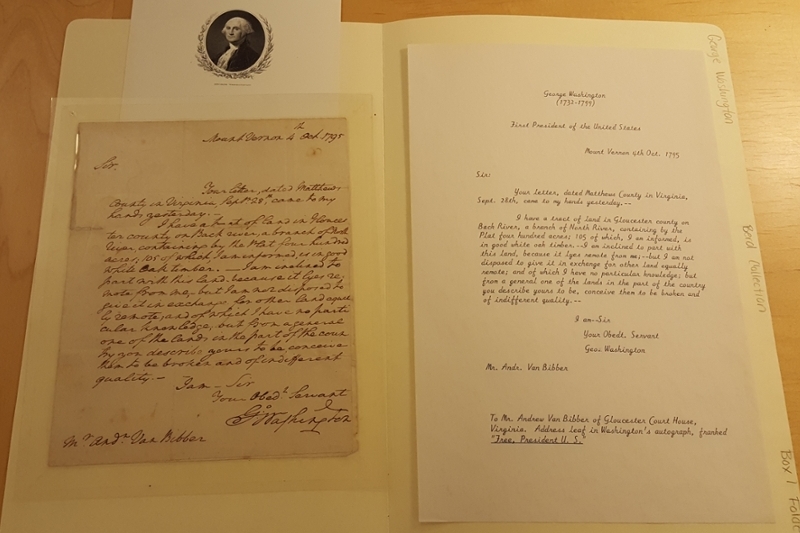 Mount Vernon 4th Oct. 1795
Sir,
Your letter, dated Matthews
County in Virginia, Sept. 28th, came to my
hands yesterday.—
I have a tract of land in Glouces
ter county on Back river, a branch of North
River, containing by the Plat four hundred
acres; 105 of which, I am informed, is in good
white Oak timber. — I am inclined to
part with this land, because it lyes re-
mote from me; but I am not disposed to
give it in exchange for other land equal
ly remote; and of which I have no parti
cular knowledge; but from a general
one of the lands in the part of the coun
try you describe yours to be, conceive
them to be broken and of indifferent
quality.—
I am – Sir
Your Obedt. Servant
Go: Washington
Mr. Andw. Van Bibber
George Washington
(1732-1799)
First President of the United States
Mount Vernon 4th Oct. 1795
Sir:
Your letter, dated Matthews County in Virginia,
Sept. 28th, came to my hands yesterday.--
I have a tract of land in Gloucester county on
Back River, a branch of North River, containing by the
Plat four hundred acres; 105 of which, I am informed, is
in good white oak timber.--I am inclined to part with
this land, because it lyes remote from me;--but I am not
disposed to give it in exchange for other land equally
remote; and of which I have no particular knowledge; but
from a general one of the lands in the part of the country
you describe yours to be, conceive them to be broken and
of indifferent quality.--
I am-Sir
Your Obedt. Servant
Geo. Washington
Mr. Andr. Van Bibber
To Mr. Andrew Van Bibber of Gloucester Court House,
Virginia. Address leaf in Washington's autograph, franked
"Free, President U. S."
George Washington
Box 1 Folder